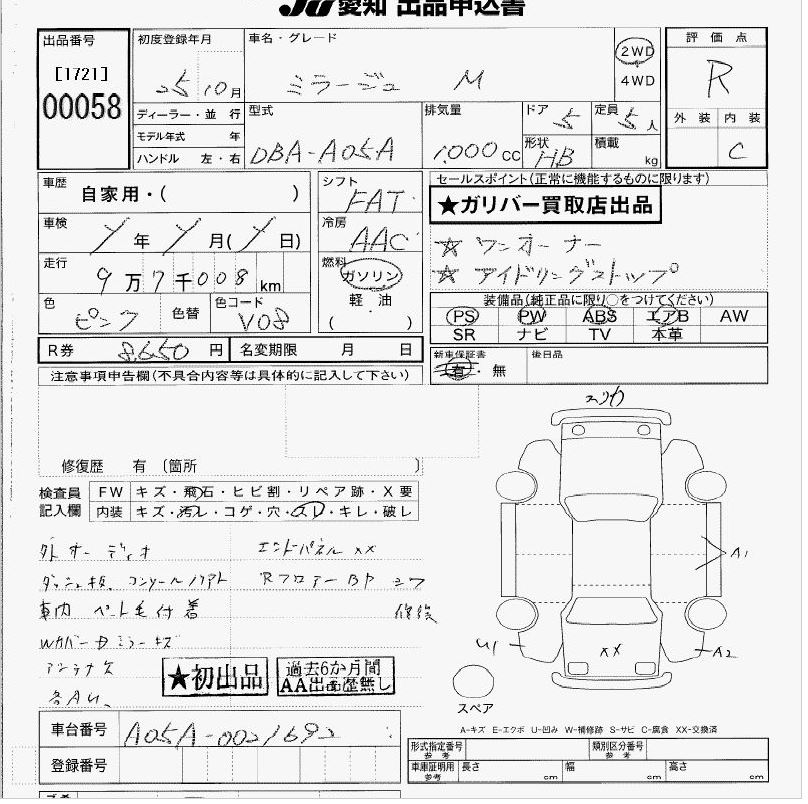 JU 愛知 出品申込書
出品番号
[1721]
00058
初度登録年月
25 10月
ディーラー・並 行
モデル年式 年
ハンドル 左・右
車名・グレード
ミラージュ M
2WD
4WD
型式
DBA-A05A
排気量
1000cc
ドア 5
定員 5人
形状 HB
積載 kg
評 価 点
R
外 装 内 装
C
車歴
自家用・( )
車検
年 月( 日)
走行
9万7千008km
色
ピンク
色替
色コード
V08
シフト
FAT
冷房
AAC
燃料
ガソリン
軽・油
( )
R券 8,650円
名変期限 月 日
セールスポイント(正常に機能するものに限ります)
★ガリバー買取店出品
☆ ワンオーナー
☆ アイドリングストップ
装備品(純正品に限り○をつけてください)
PS PW ABS エアB AW
SR ナビ TV 本革
新車保証書
有・無
後日品
注意事項申告欄(不具合内容等は具体的に記入して下さい)
修復歴 有 〔箇所 〕
検査員
記入欄
FW キズ・飛石・ヒビ割・リペア跡・X要
内装 キズ・汚レ・コゲ・穴・スレ・キレ・破レ
外オーディオ
車内 ペット毛付着
アンテナ欠
各AU、
エンドパネルXX
RフロアーBP
修後
★初出品
過去6か月間
AA出品歴無し
A1
U1
XX
A2
スペア
A-キズ E-エクボ U-凹み W-補修跡 S-サビ C-腐食 XX-交換済
車台番号 A05A-0021692
登録番号
形式指定番号
参 考
類別区分番号
参 考
車庫証明用
参考
長さ cm
幅 cm
高さ cm